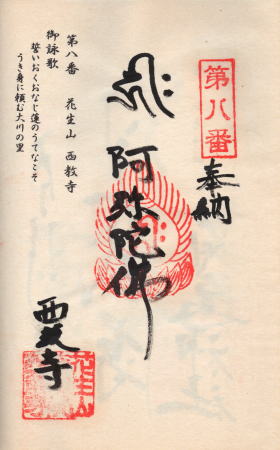 第八番
奉納
阿弥陀佛
西教寺
花生山
第八番 花生山 西教寺
御詠歌
誓いおくおなじ蓮のうてなこそ
うき身に頼む大川の里